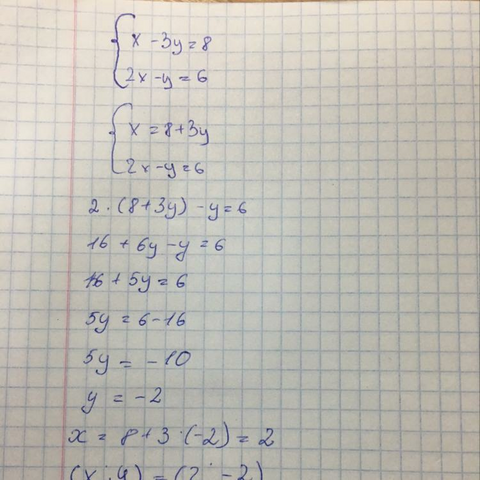 x - 3y = 8
2x - y = 6
x = 8 + 3y
2x - y = 6
2 · (8 + 3y) - y = 6
16 + 6y - y = 6
16 + 5y = 6
5y = 6 - 16
5y = -10
y = -2
x = 8 + 3 · (-2) = 2
(x ; y) = (2 ; -2)